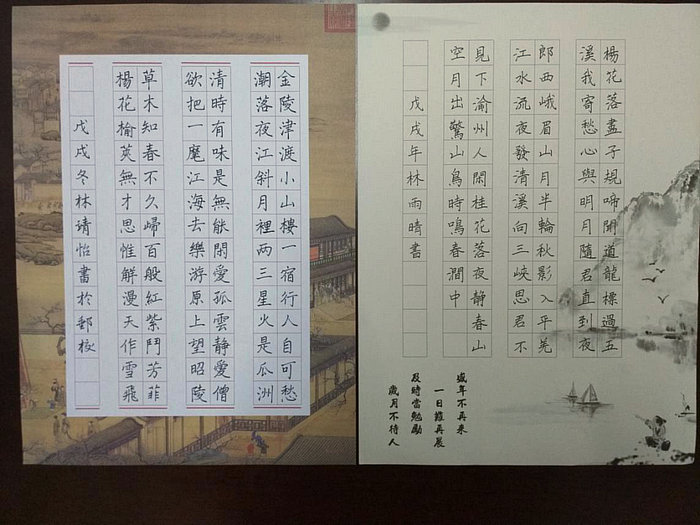 楊花落盡子規啼聞道龍標過五
溪我寄愁心與明月隨君直到夜
郎西峨眉山月半輪秋影入平羌
江水流夜發清溪向三峽思君不
見下渝州人閒桂花落夜靜春山
空月出驚山鳥時鳴春澗中
戊戌年林雨晴書
盛年不再來
一日難再晨
及時當勉勵
歲月不待人
金陵津渡小山樓一宿行人自可愁
潮落夜江斜月裡兩三星火是瓜洲
清時有味是無能閒愛孤雲靜愛僧
欲把一麾江海去樂游原上望昭陵
草木知春不久歸百般紅紫鬥芳菲
楊花榆莢無才思惟解漫天作雪飛
戊戌冬林靖怡書於郵校